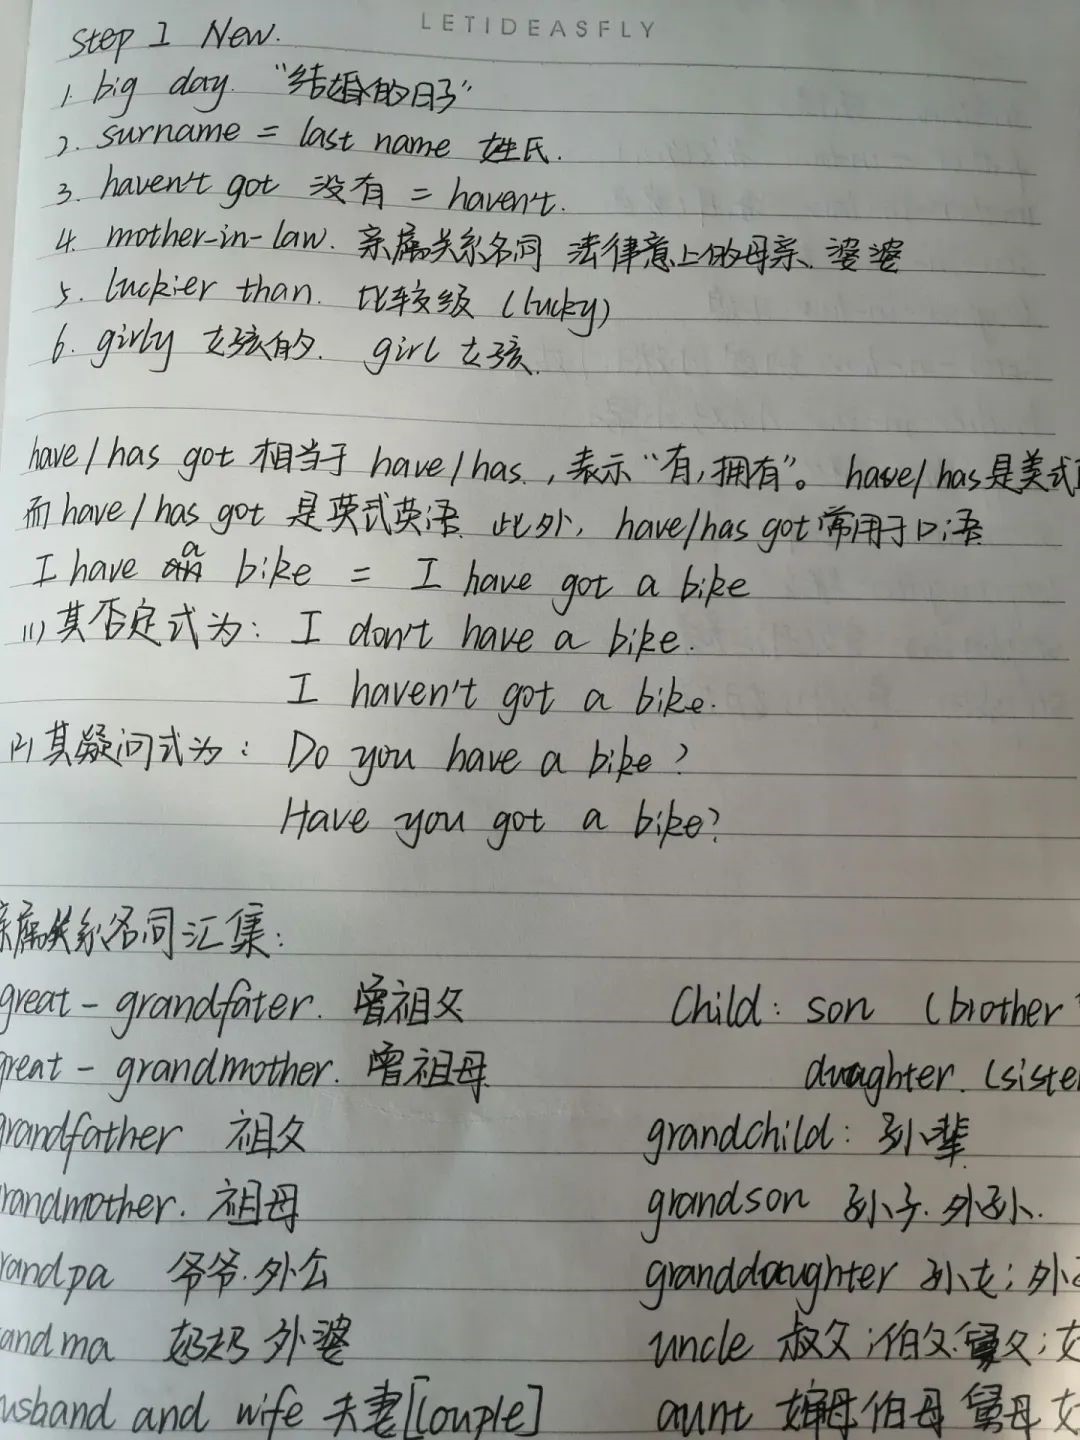 LETIDEASFLY
Step 1 New.
1. big day. "结婚的日子"
2. surname = last name 姓氏.
3. haven't got 没有 = haven't.
4. mother-in-law. 亲属关系名词 法律意上的母亲. 婆婆
5. luckier than. 比较级 (lucky)
6. girly 女孩的. girl 女孩.
have/has got 相当于 have/has, 表示"有,拥有"。have/has是美式
而have/has got 是英式英语. 此外, have/has got 常用于口语
I have a bike = I have got a bike
(1) 其否定式为: I don't have a bike.
I haven't got a bike.
(2) 其疑问式为: Do you have a bike?
Have you got a bike?
亲属关系名词汇集:
great-grandfater. 曾祖父 Child: son (brother
great-grandmother. 曾祖母 daughter. (siste
grandfather 祖父 grandchild: 孙辈
randmother. 祖母 grandson 孙子. 外孙.
randpa 爷爷. 外公 granddaughter 孙女; 外
andma 奶奶 外婆 uncle 叔父; 伯父; 舅父; 女
usband and wife 夫妻 [couple] aunt 婶母 伯母 舅母 女